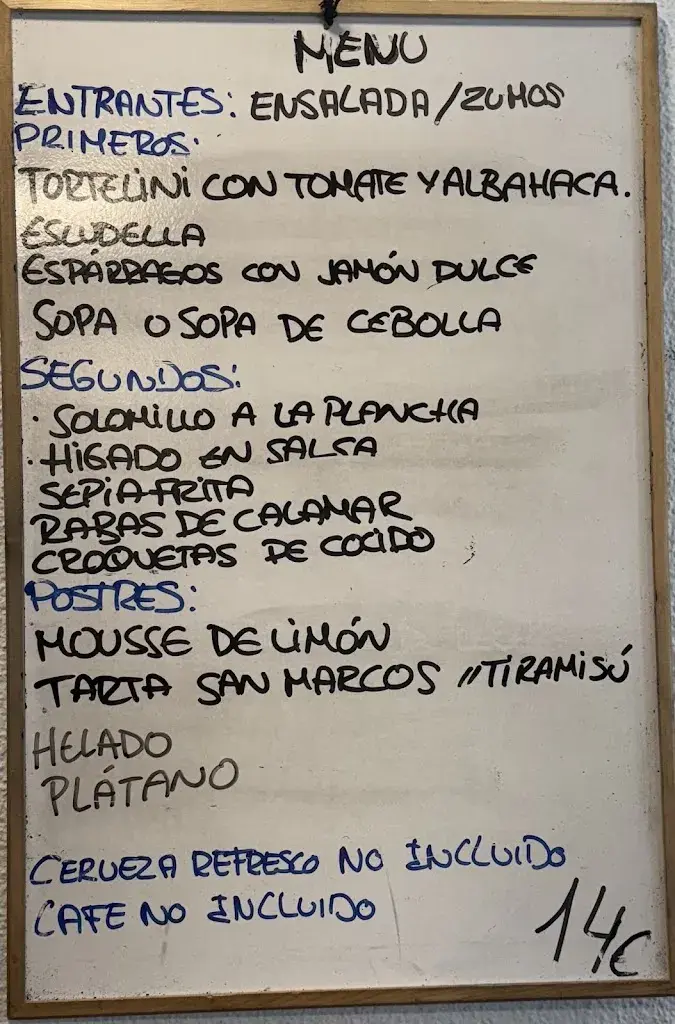 MENU
ENTRANTES: ENSALADA/ZUMOS
PRIMEROS:
TORTELINI CON TOMATE Y ALBAHACA.
ESCUDELLA
ESPÁRRAGOS CON JAMÓN DULCE
SOPA O SOPA DE CEBOLLA
SEGUNDOS:
· SOLOMILLO A LA PLANCHA
· HIGADO EN SALSA
SEPIA FRITA
RABAS DE CALAMAR
CROQUETAS DE COCIDO
POSTRES:
MOUSSE DE LIMÓN
TARTA SAN MARCOS // TIRAMISÚ
HELADO
PLÁTANO
CERVEZA REFRESCO NO INCLUIDO
CAFE NO INCLUIDO
14€